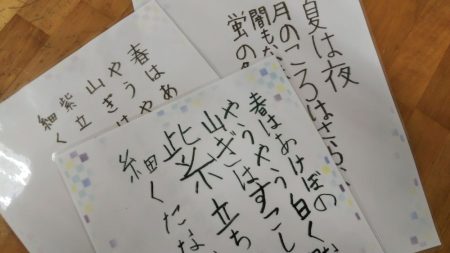 夏は夜
月のころはさら
闇も
蛍の
春はあ
やうや
山ぎは
紫立
細く
春はあけぼの
やうやう白く
山ぎはすこし
紫立ち
細くたな